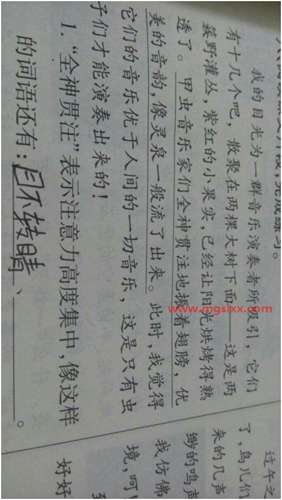 段，完成练习。
我的目光为一群音乐演奏者所吸引，它们
有十几个吧，散聚在两棵大树下面——这是两
簇野灌丛，紫红的小果实，已经让阳光烘烤得熟
透了。甲虫音乐家们全神贯注地振着翅膀，优
美的音韵，像灵泉一般流了出来。此时，我觉得
它们的音乐优于人间的一切音乐，这是只有虫
子们才能演奏出来的！
1. “全神贯注”表示注意力高度集中，像这样
的词语还有：目不转睛、。
www.mgslxx.com
过年之
了，鸟儿们
来的几声
缈的鸣声
我仿佛
境，呵！
好好